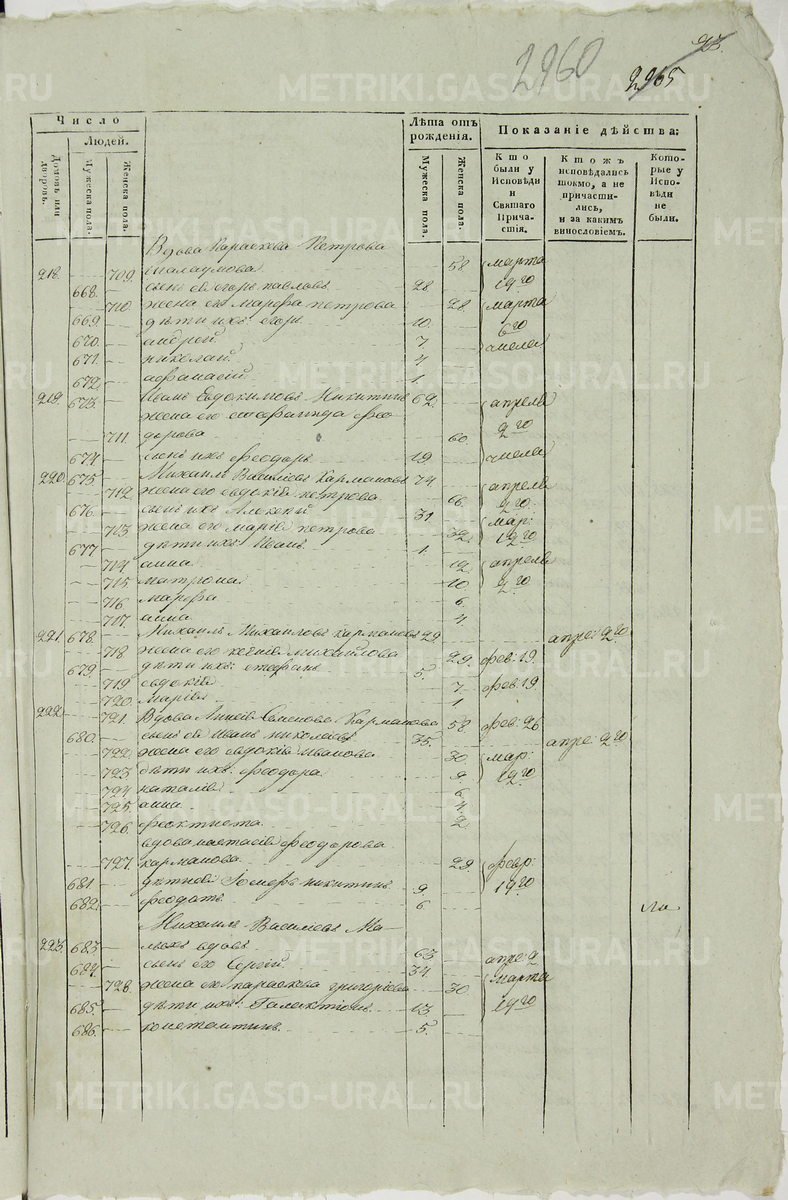 93.
2960
2965
Число
Людей.
Домовъ или дворовъ.
Мужеска пола.
Женска пола.
Лѣта отъ рожденія.
Мужеска пола.
Женска пола.
Показаніе дѣйства:
Кто были у Исповѣди и Святаго Причастія.
Ктожъ исповѣдались токмо, а не причастились, и за какимъ винословіемъ.
Которые у Исповѣди не были.
Вдова Параскева Петрова
218. 709. 58. марта
668. сынъ ея Егоръ Павловъ 28. 19го
710. жена его Марфа Петрова 28. марта
669. дѣти ихъ: Егоръ 10. 6го
670. Андрей 7. числа
671. Николай 4
672. Афанасій 1.
219. 673. Иванъ Евдокимовъ Никитинъ 62. апреля
жена его Фео-
711 дорова 60. 2го
674 сынъ ихъ Феодоръ 19. числа
220. 675 Михаилъ Василіевъ Кармановъ 74 апреля
712. жена его Евдокія Петрова 66. 2го
676. сынъ ихъ Алексій 31 мар:
713 жена его Марія Петрова 32. 19го
677 дѣти ихъ: Иванъ 1.
714 Анна 12. апреля
715 Матрона 10. 2го
716 Марфа 6.
717 Анна 4.
221. 678. Михаилъ Михаиловъ Кармановъ 29. апре: 2го
718. жена его Ксенія Михайлова 29. фев: 19.
679. дѣти ихъ: Стефанъ 5.
719 Евдокія 7. фев: 19
720. Марія 1
222. 721. Вдова Семенова Карманова 58 фев: 26
680. сынъ ея Иванъ Николаевъ 35. апре: 2го
722. жена его Евдокія Иванова 30. мар:
723 дѣти ихъ: Феодора 9. 19го
724 Наталія 6.
725. Анна 4
726. Феоктиста 2
вдова Настасія Феодорова
727. Карманова 29. февр:
681 Никитинъ 9 19го
682. Феодотъ 6.
Михаилъ Василіевъ Ма-
223. 683 лыхъ вдовъ 63 апре: 2
684. сынъ его Сергій 34 марта
728. жена его Параскева Григоріева 30. 19го
685. дѣти ихъ: Галактіонъ 13.
686. Константинъ 5.
METRIKI.GASO-URAL.RU